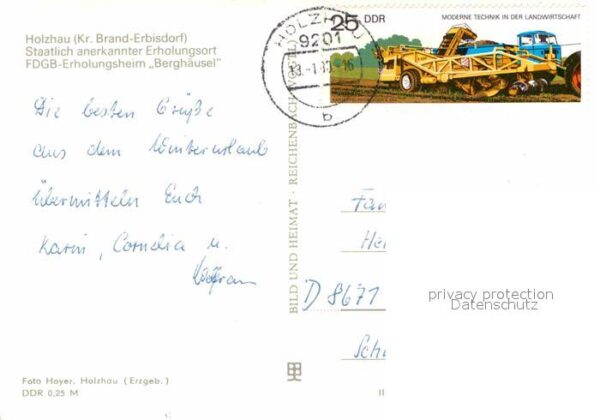 Holzhau (Kr. Brand-Erbisdorf)
Staatlich anerkannter Erholungsort
FDGB-Erholungsheim „Berghäusel"
Die besten Grüße
aus dem Winterurlaub
übermitteln Euch
Karin, Cornelia u.
Wolfram
Foto Hoyer, Holzhau (Erzgeb.)
DDR 0,25 M
BILD UND HEIMAT · REICHENBACH
HOLZHAU
9201
b
25 DDR
MODERNE TECHNIK IN DER LANDWIRTSCHAFT
Fam
D 8671
privacy protection
Datenschutz
II